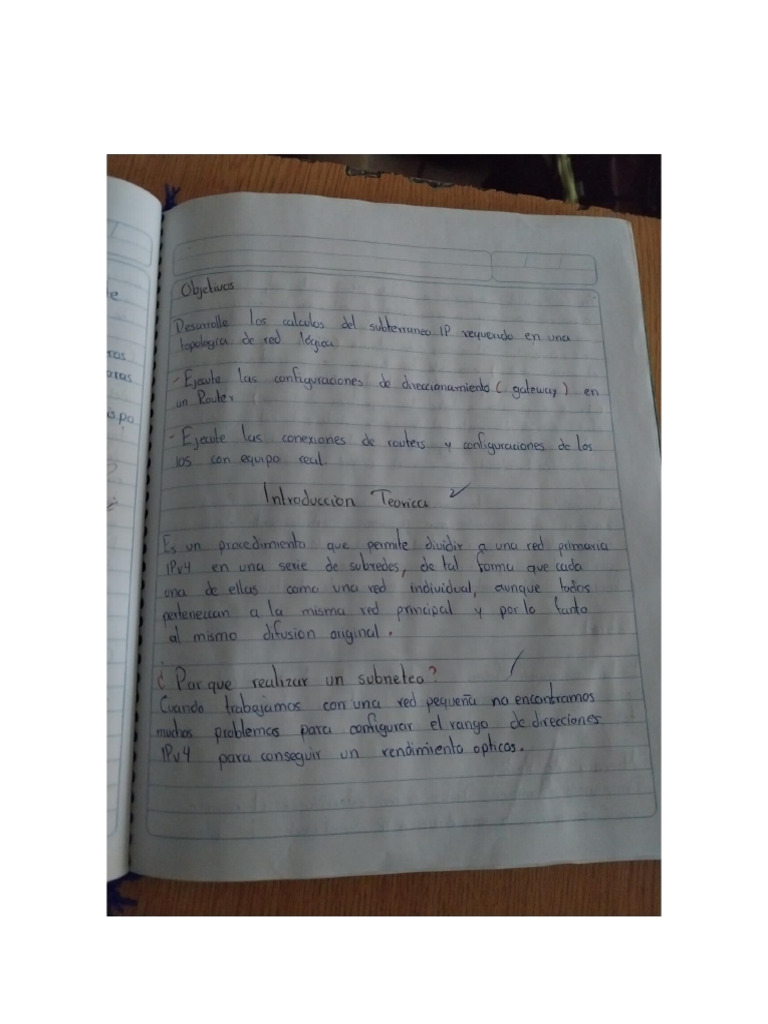 Objetivos
Desarrolle los calculos del subterraneo IP requerido en una
topologia de red lógica
- Ejecute las configuraciones de direccionamiento ( gateway ) en
un Router
- Ejecute las conexiones de routers y configuraciones de los
los con equipo real.
Introduccion Teorica
Es un procedimiento que permite dividir a una red primaria
IPv4 en una serie de subredes, de tal forma que cada
una de ellas como una red individual, aunque todos
pertenezcan a la misma red principal y por lo tanto
al mismo difusion original.
¿Por que realizar un subneteo?
Cuando trabajamos con una red pequeña no encontramos
muchos problemas para configurar el rango de direcciones
IPv4 para conseguir un rendimiento opticos.